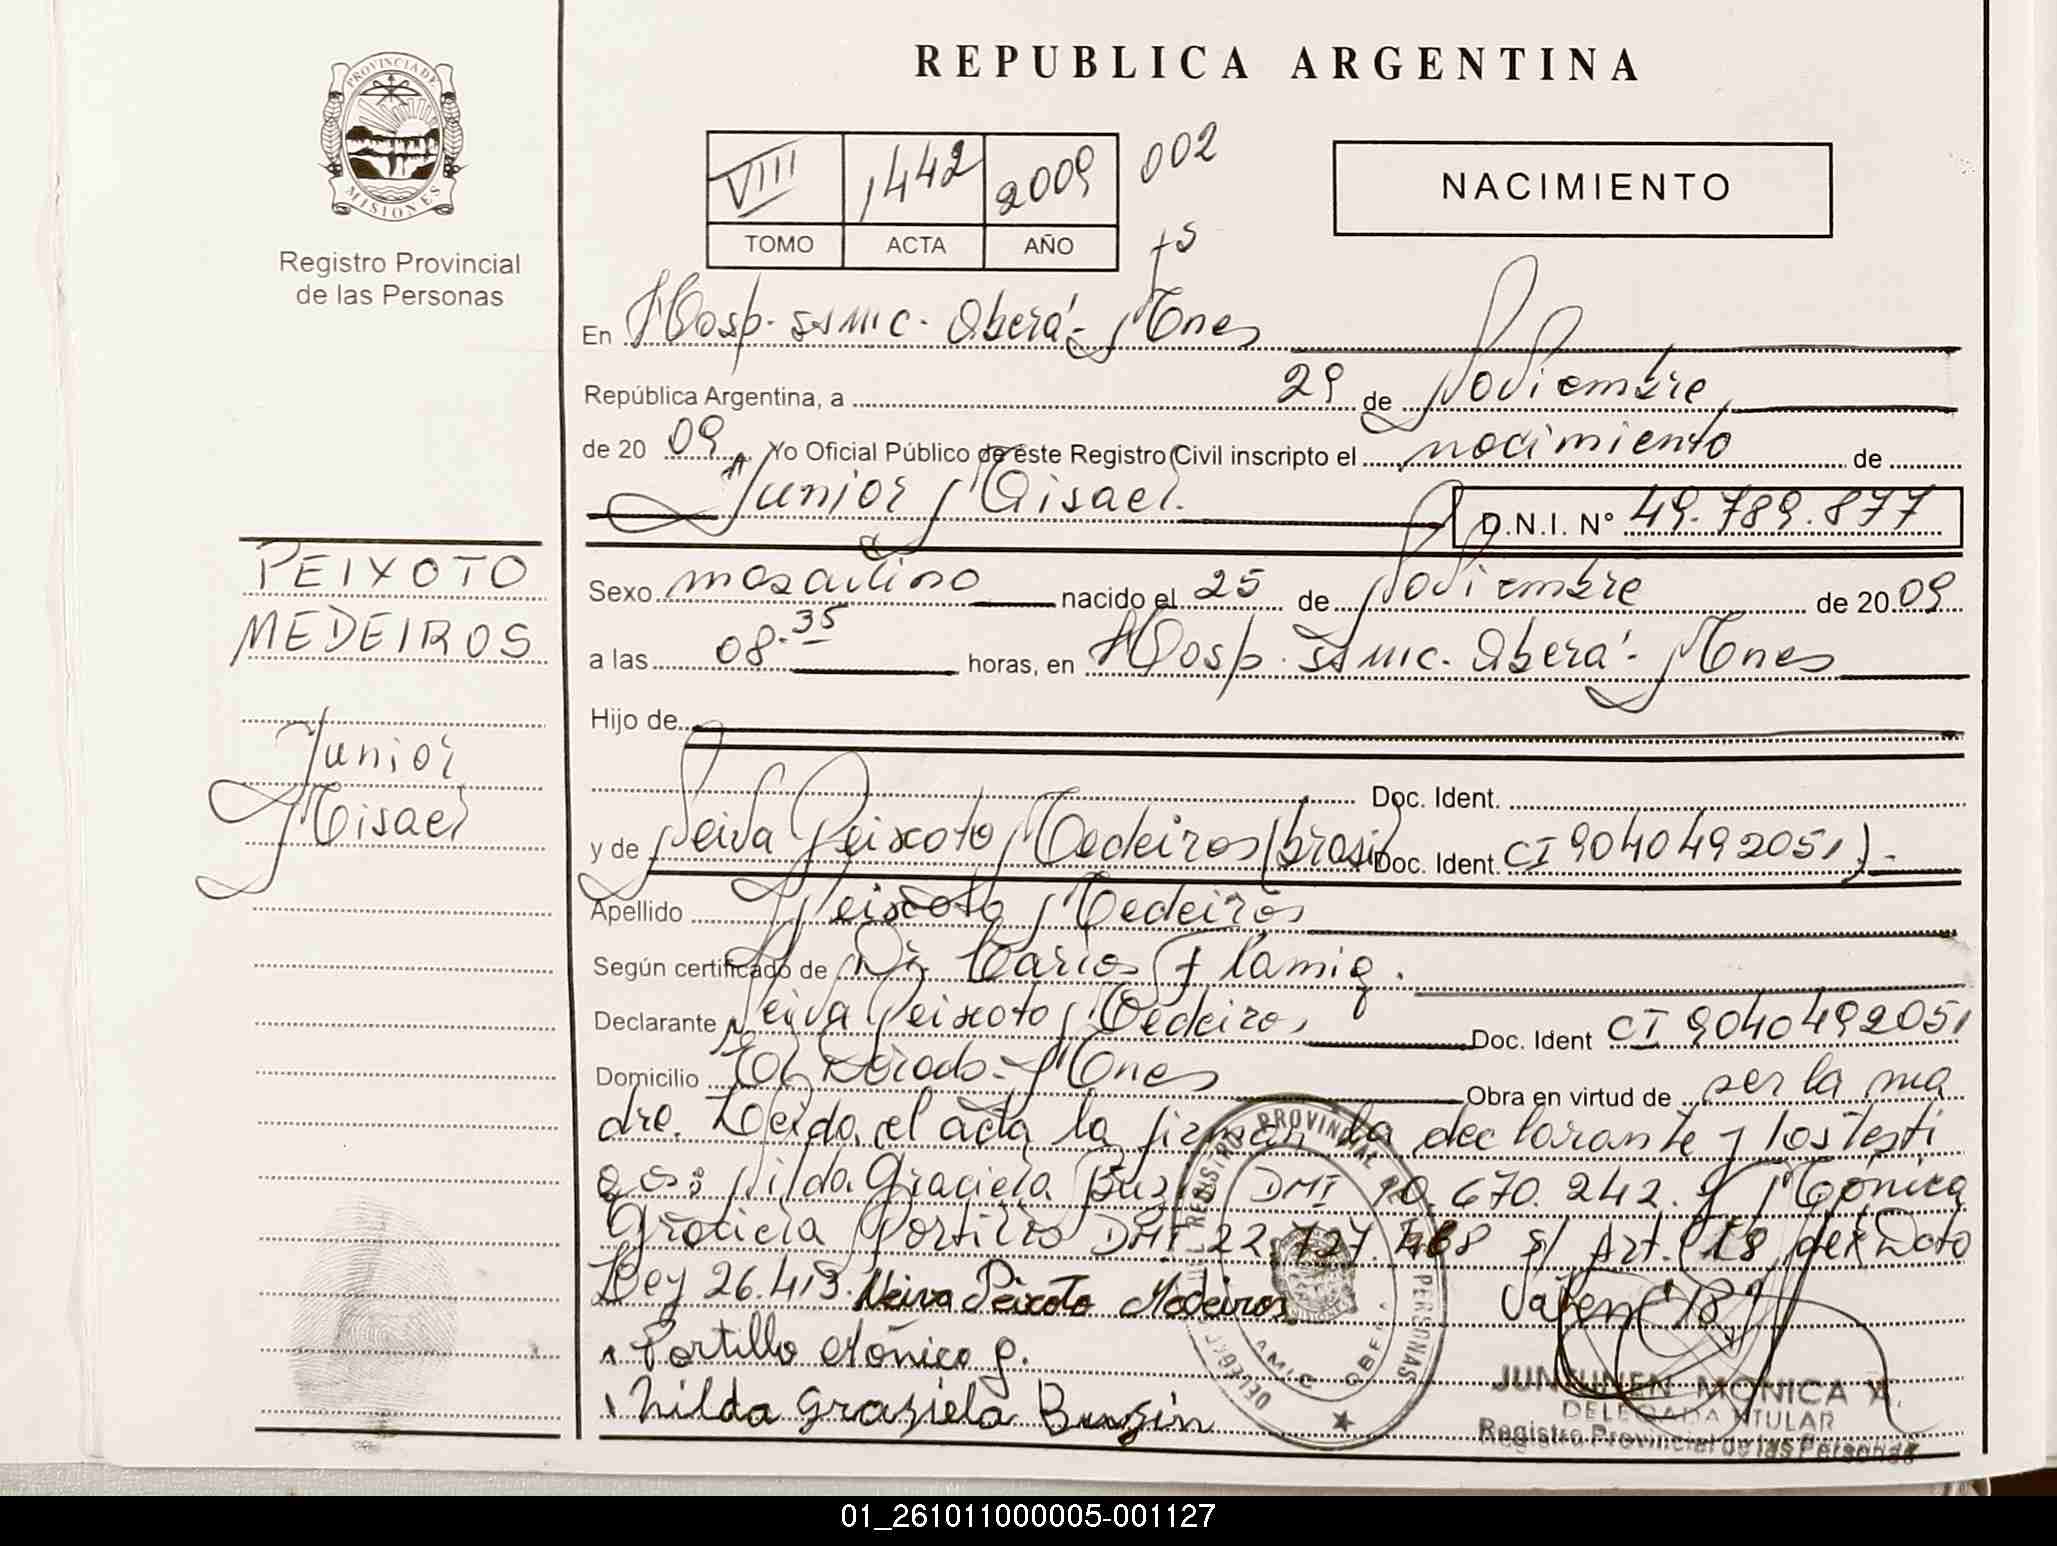 REPUBLICA ARGENTINA
PROVINCIA DE
MISIONES
Registro Provincial
de las Personas
VIII 1442 2009 002
TOMO ACTA AÑO
NACIMIENTO
En Hosp. SSMIC. Oberá - Mnes
República Argentina, a 29 de Noviembre
de 20 09, Yo Oficial Público de este Registro Civil inscripto el nacimiento de
Junior Misael. D.N.I. Nº 49.789.877
PEIXOTO
MEDEIROS
Junior
Misael
Sexo masculino nacido el 25 de Noviembre de 20 09
a las 08.35 horas, en Hosp. SSMIC. Oberá - Mnes
Hijo de
Doc. Ident.
y de Neiva Peixoto Medeiros (brasil Doc. Ident. CI 9040492051).-
Apellido Peixoto Medeiros
Según certificado de Dr. Carlos Flamig.
Declarante Neiva Peixoto Medeiros Doc. Ident CI 9040492051
Domicilio El Dorado - Mnes Obra en virtud de ser la ma
dre. Leida el acta la firman la declarante y los testi
gos: Nilda Graciela DNI 10.670.242. y Mónica
Graciela Portillo DNI 22.727.468 s/ Art. 18 del Dcto
Ley 26.413. Neiva Peixoto Medeiros Valen "18"
Portillo Mónica G.
Nilda Graziela
REGISTRO PROVINCIAL DE PERSONAS
JUNKUNEN MONICA
DELEGADA TITULAR
Registro Provincial de las Personas
01_261011000005-001127